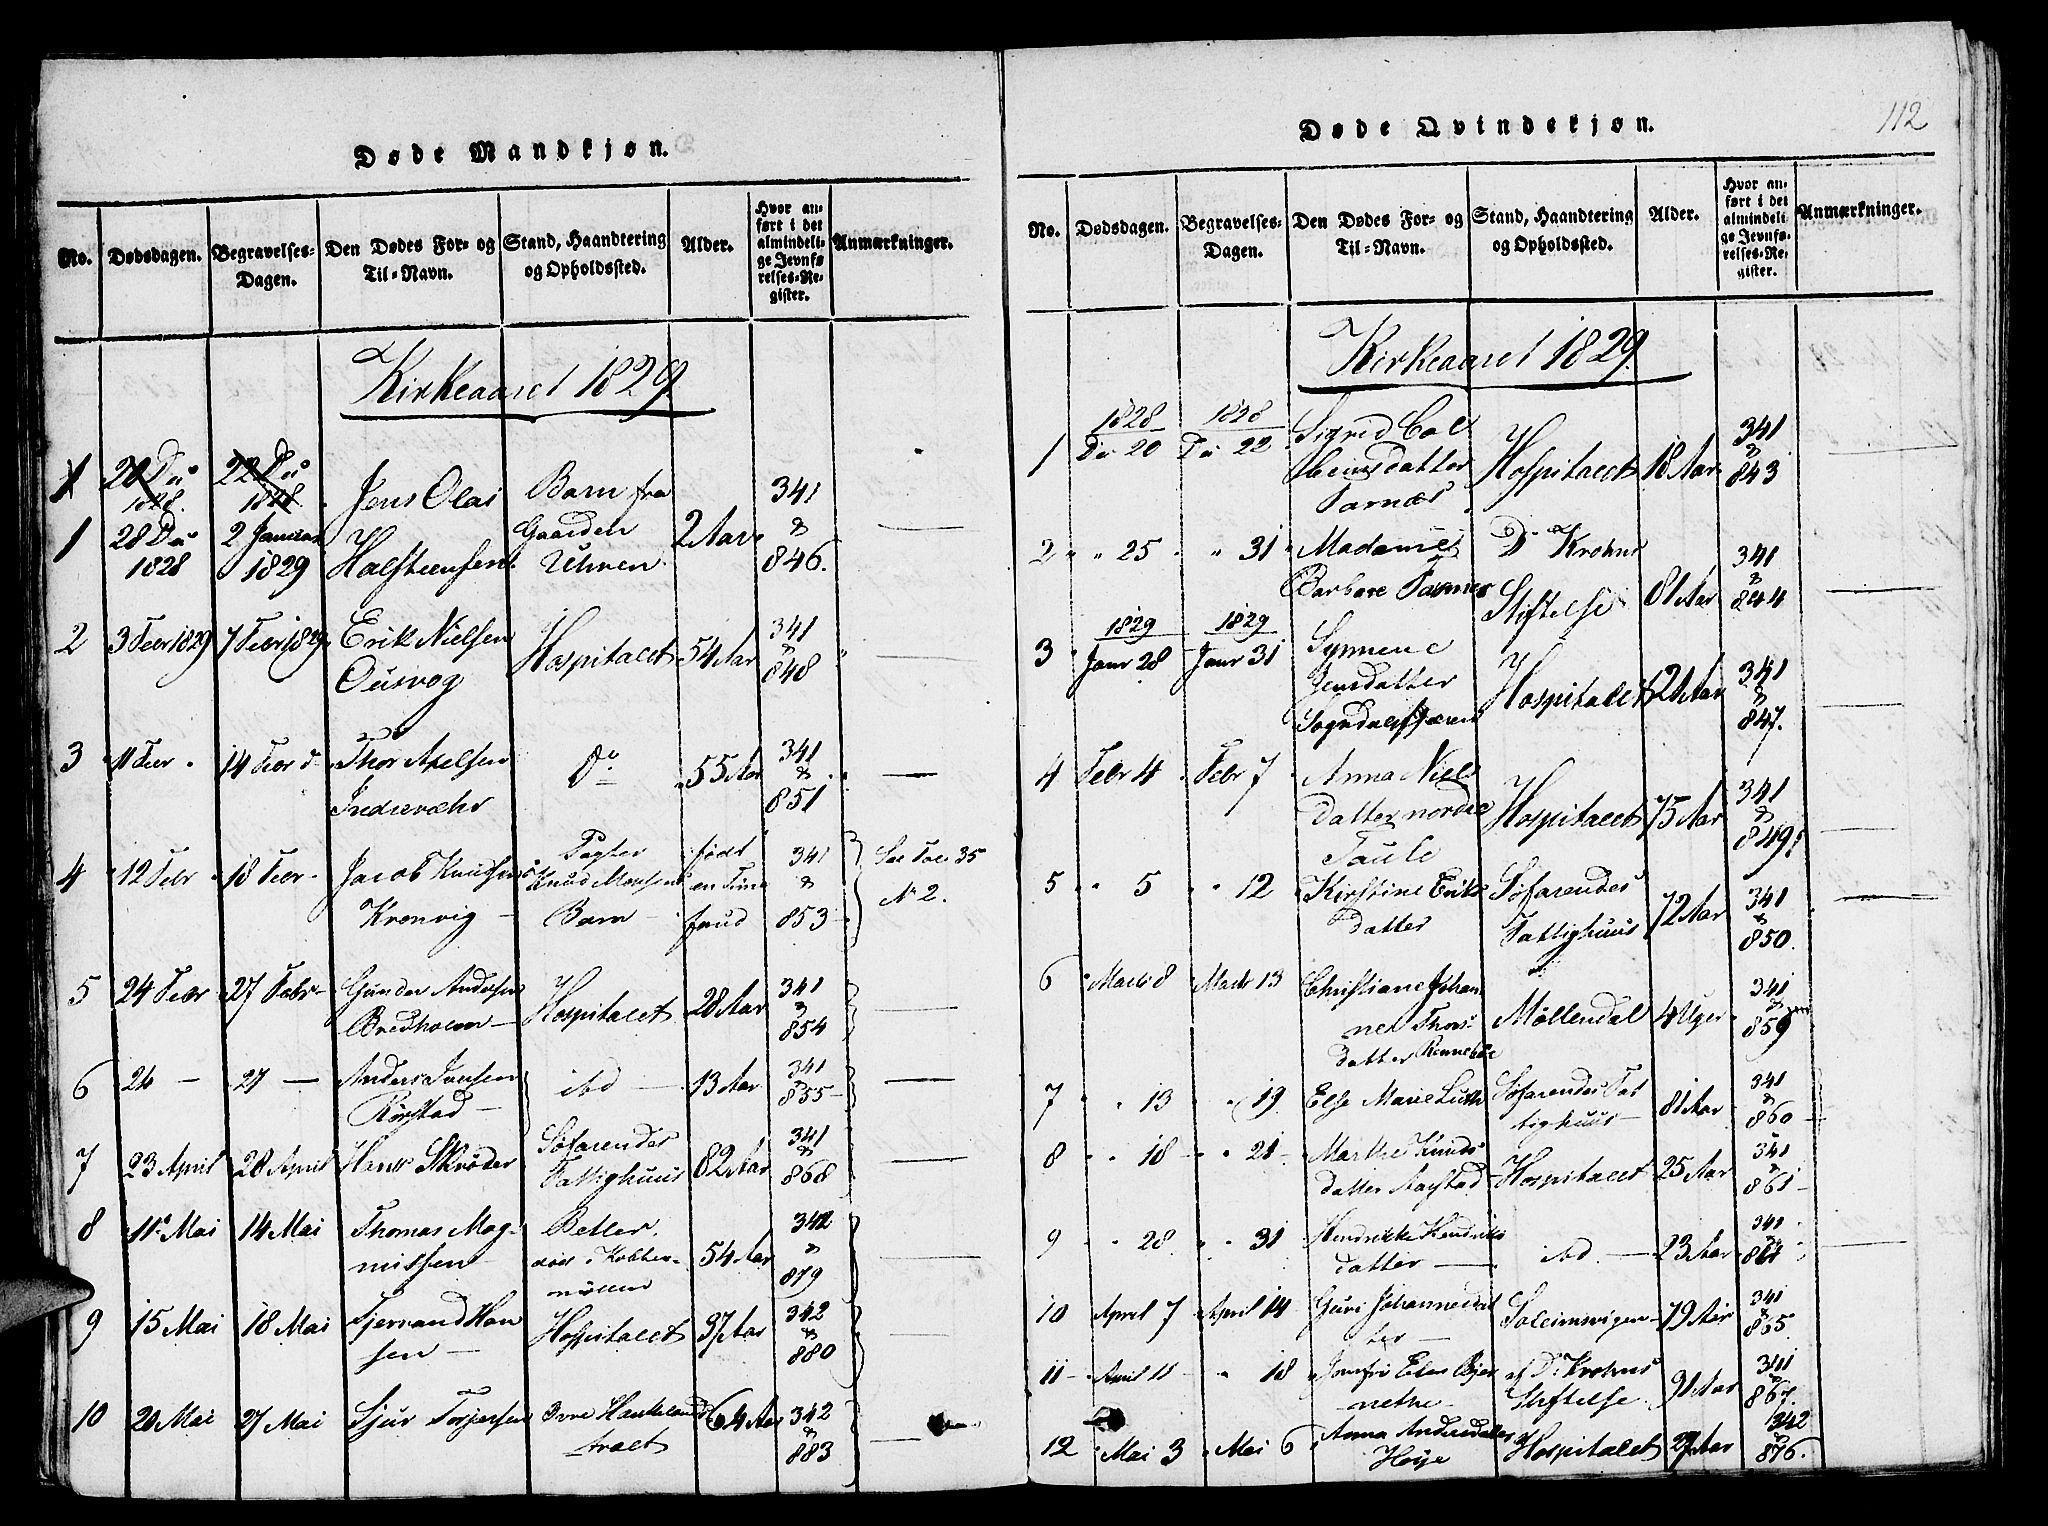 Døde Mandkjøn.
No. Dødsdagen. Begravelses-Dagen. Den Dødes For- og Til-Navn. Stand, Haandtering og Opholdssted. Alder. Hvor anført i det almindelige Jevnførelses-Register. Anmærkninger.
Kirkeaaret 1829.
1 20 De 1828. 22 De 1828
1 28 De 1828 2 Januar 1829 Jens Olai Halsteensen Barn fra Gaarden Uhren. 2 Aar 341 & 846.
2 3 Febr 1829 7 Febr 1829 Erik Nielsen Hospitalet 54 Aar 341 & 848
3 11 Febr 14 Febr Thor Axelsen Indrevæhr Do 55 Aar 341 & 851
4 12 Febr 18 Febr Jacob Knudsen Kronvig Pagter Knud Monsens Barn født en Time 341 & 853 See Fol 35 N 2.
5 24 Febr 27 Febr Gunder Andersen Bredholm Hospitalet 28 Aar 341 & 854
6 24 27 Anders Iversen Rørstad ibd 13 Aar 341 & 855
7 23 April 28 April Hans Skrøder Søfarendes Fattighuus 82 Aar 341 & 868
8 11 Mai 14 Mai Thomas Magnussen Betler 54 Aar 342 & 879
9 15 Mai 18 Mai Tjerrand Hansen Hospitalet 37 Aar 342 & 880
10 20 Mai 27 Mai Sjur Torjersen 64 Aar 342 & 883
112
Døde Qvindekjøn.
No. Dødsdagen. Begravelses-Dagen. Den Dødes For- og Til-Navn. Stand, Haandtering og Opholdssted. Alder. Hvor anført i det almindelige Jevnførelses-Register. Anmærkninger.
Kirkeaaret 1829.
1 1828 De 20 1828 De 22 Sigrid Colbeinsdatter Tarnes Hospitalet 18 Aar 341 & 843
2 " 25 " 31 Madame Barbare D. Krohns Stiftelse 81 Aar 341 & 844
3 1829 Janr 28 1829 Janr 31 Synneve Jensdatter Hospitalet 21 Aar 341 & 847.
4 Febr 4 Febr 7 Anna Nielsdatter nordre Taule Hospitalet 75 Aar 341 & 849
5 " 5 " 12 Kirstine Eriksdatter Søfarendes Fattighuus 72 Aar 341 & 850.
6 Marts 8 Marts 13 Christiane Johanne Thorsdatter Møllendal 4 Uger 341 & 859
7 " 13 " 19 Else Marie Luth Søfarendes Fattighuus 81 Aar 341 & 860
8 " 18 " 21 Marthe Knudsdatter Aarstad Hospitalet 25 Aar 341 & 861
9 " 28 " 31 Hendrikke Hendriksdatter ibd. 23 Aar 341
10 April 7 April 14 Guri Johannesdatter Soleimsvigen 79 Aar 341 & 865
11 April 11 " 18 Jomfru Elen af D. Krohns Stiftelse 91 Aar 341 & 867.
12 Mai 3 Mai 6 Anna Andersdatter Høije Hospitalet 27 Aar 342 & 876.